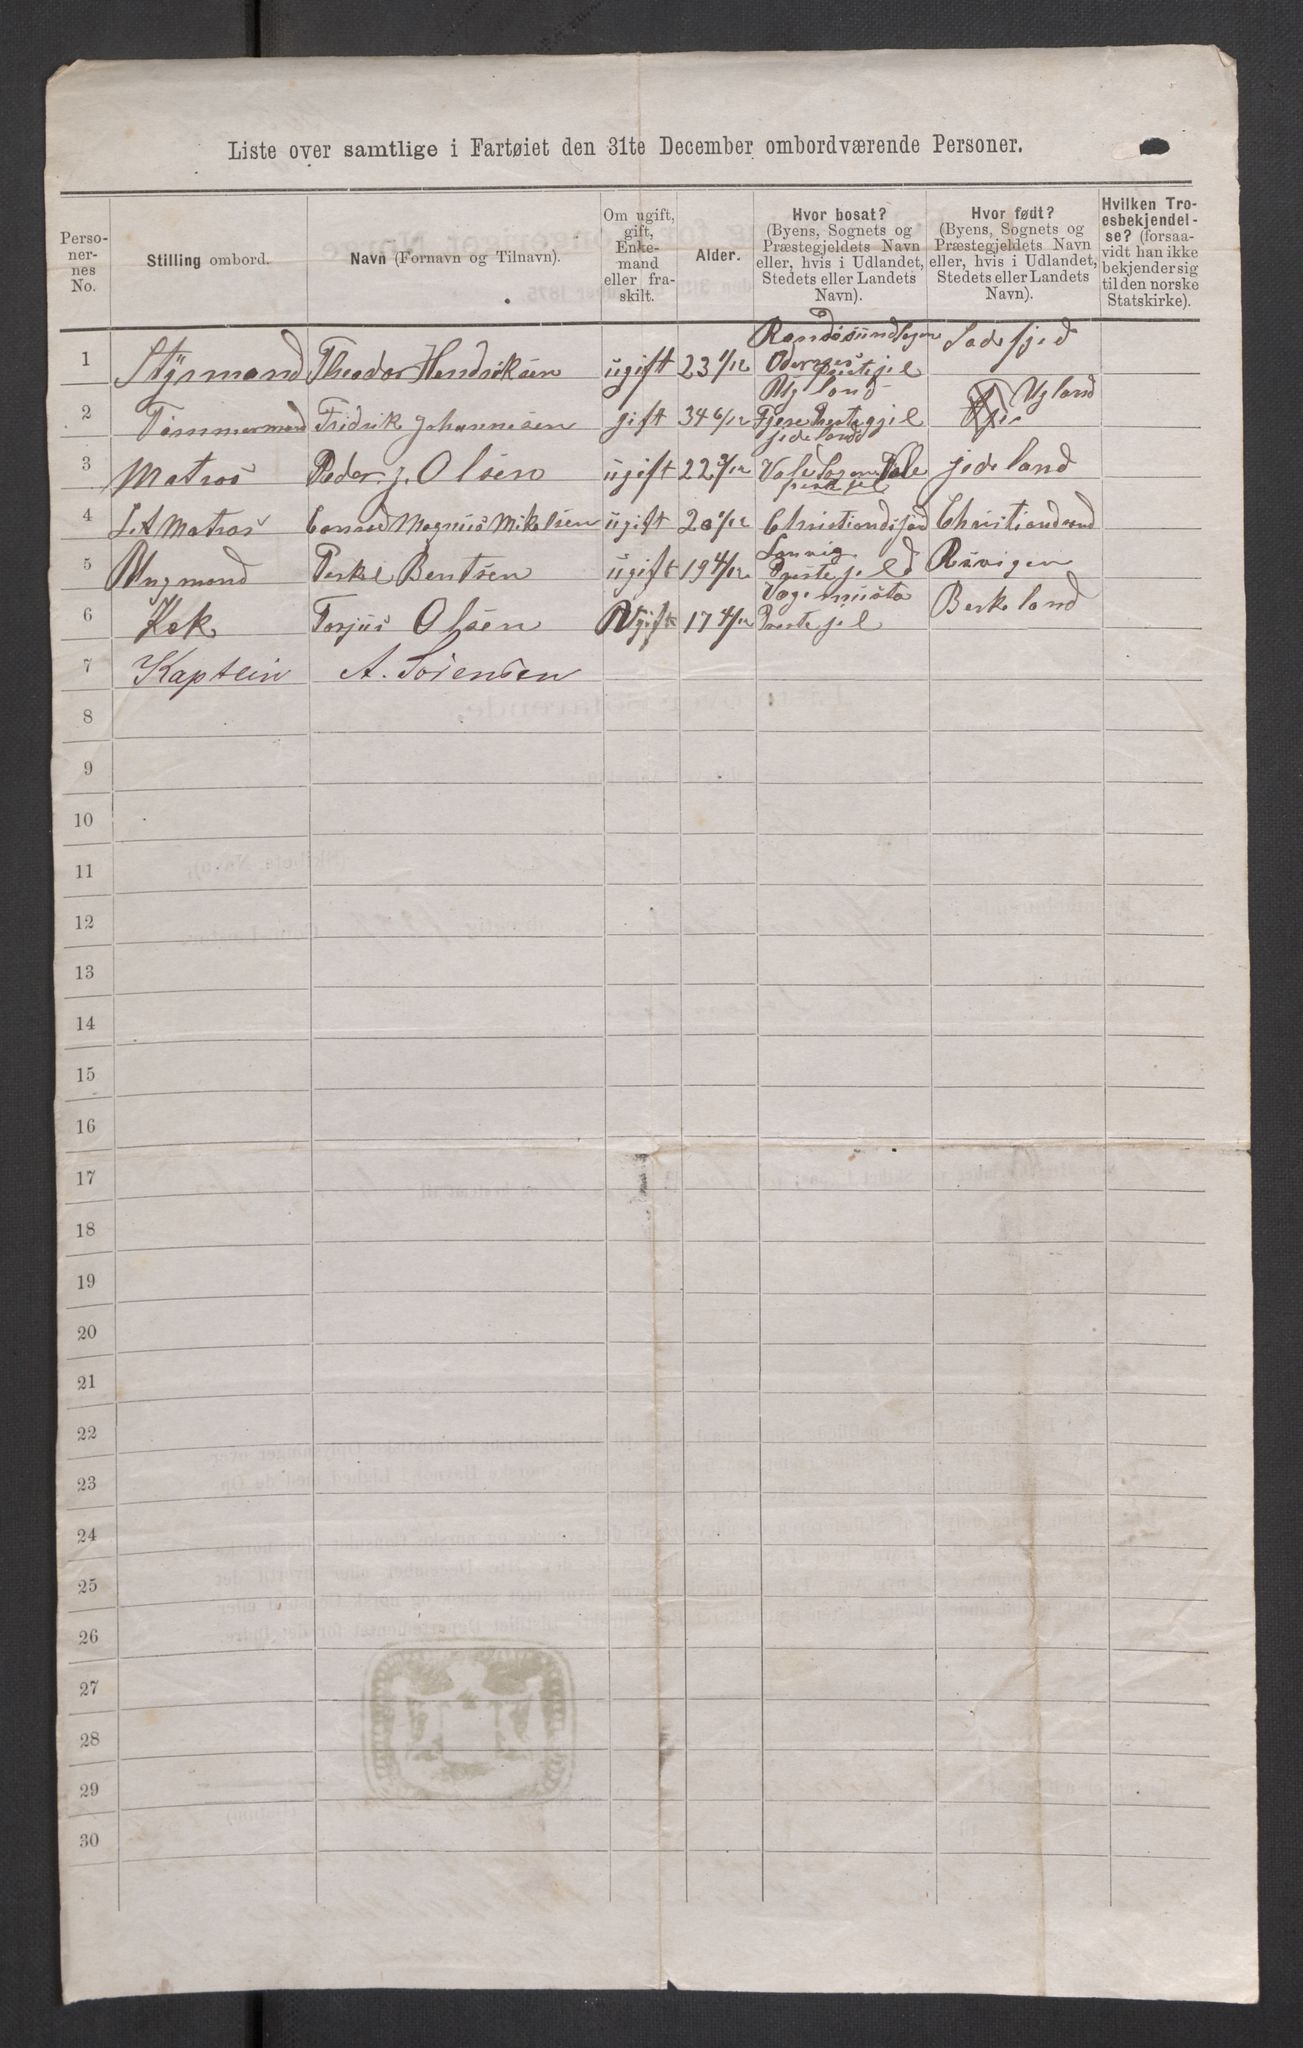 Liste over samtlige i Fartøiet den 31te December ombordværende Personer.
Perso-
ner-
nes
No.
Stilling ombord.
Navn (Fornavn og Tilnavn).
Om ugift,
gift,
Enke-
mand
eller fra-
skilt.
Alder.
Hvor bosat?
(Byens, Sognets og
Præstegjeldets Navn
eller, hvis i Udlandet,
Stedets eller Landets
Navn).
Hvor født?
(Byens, Sognets og
Præstegjeldets Navn
eller, hvis i Udlandet,
Stedets eller Landets
Navn).
Hvilken Tro-
esbekjendel-
se? (forsaa-
vidt han ikke
bekjender sig
til den norske
Statskirke).
1 Styrmand Theodor Hendriksen ugift 23 1/12
2 Tømmermand Fridrik Johannesen gift 34 6/12 Ugland
3 Matros Peder J. Olsen ugift 22 3/12 jedeland
4 L A Matros Conrad Magnus Mikelsen ugift 20 1/12 Christiandsand
5 Ungmand Terkel Bentsen ugift 19 4/12 Prestejeld
6 Kok Torjus Olsen Ugift 17 4/12 Prestejel Berkeland
7 Kaptein A. Sörensen
8
9
10
11
12
13
14
15
16
17
18
19
20
21
22
23
24
25
26
27
28
29
30